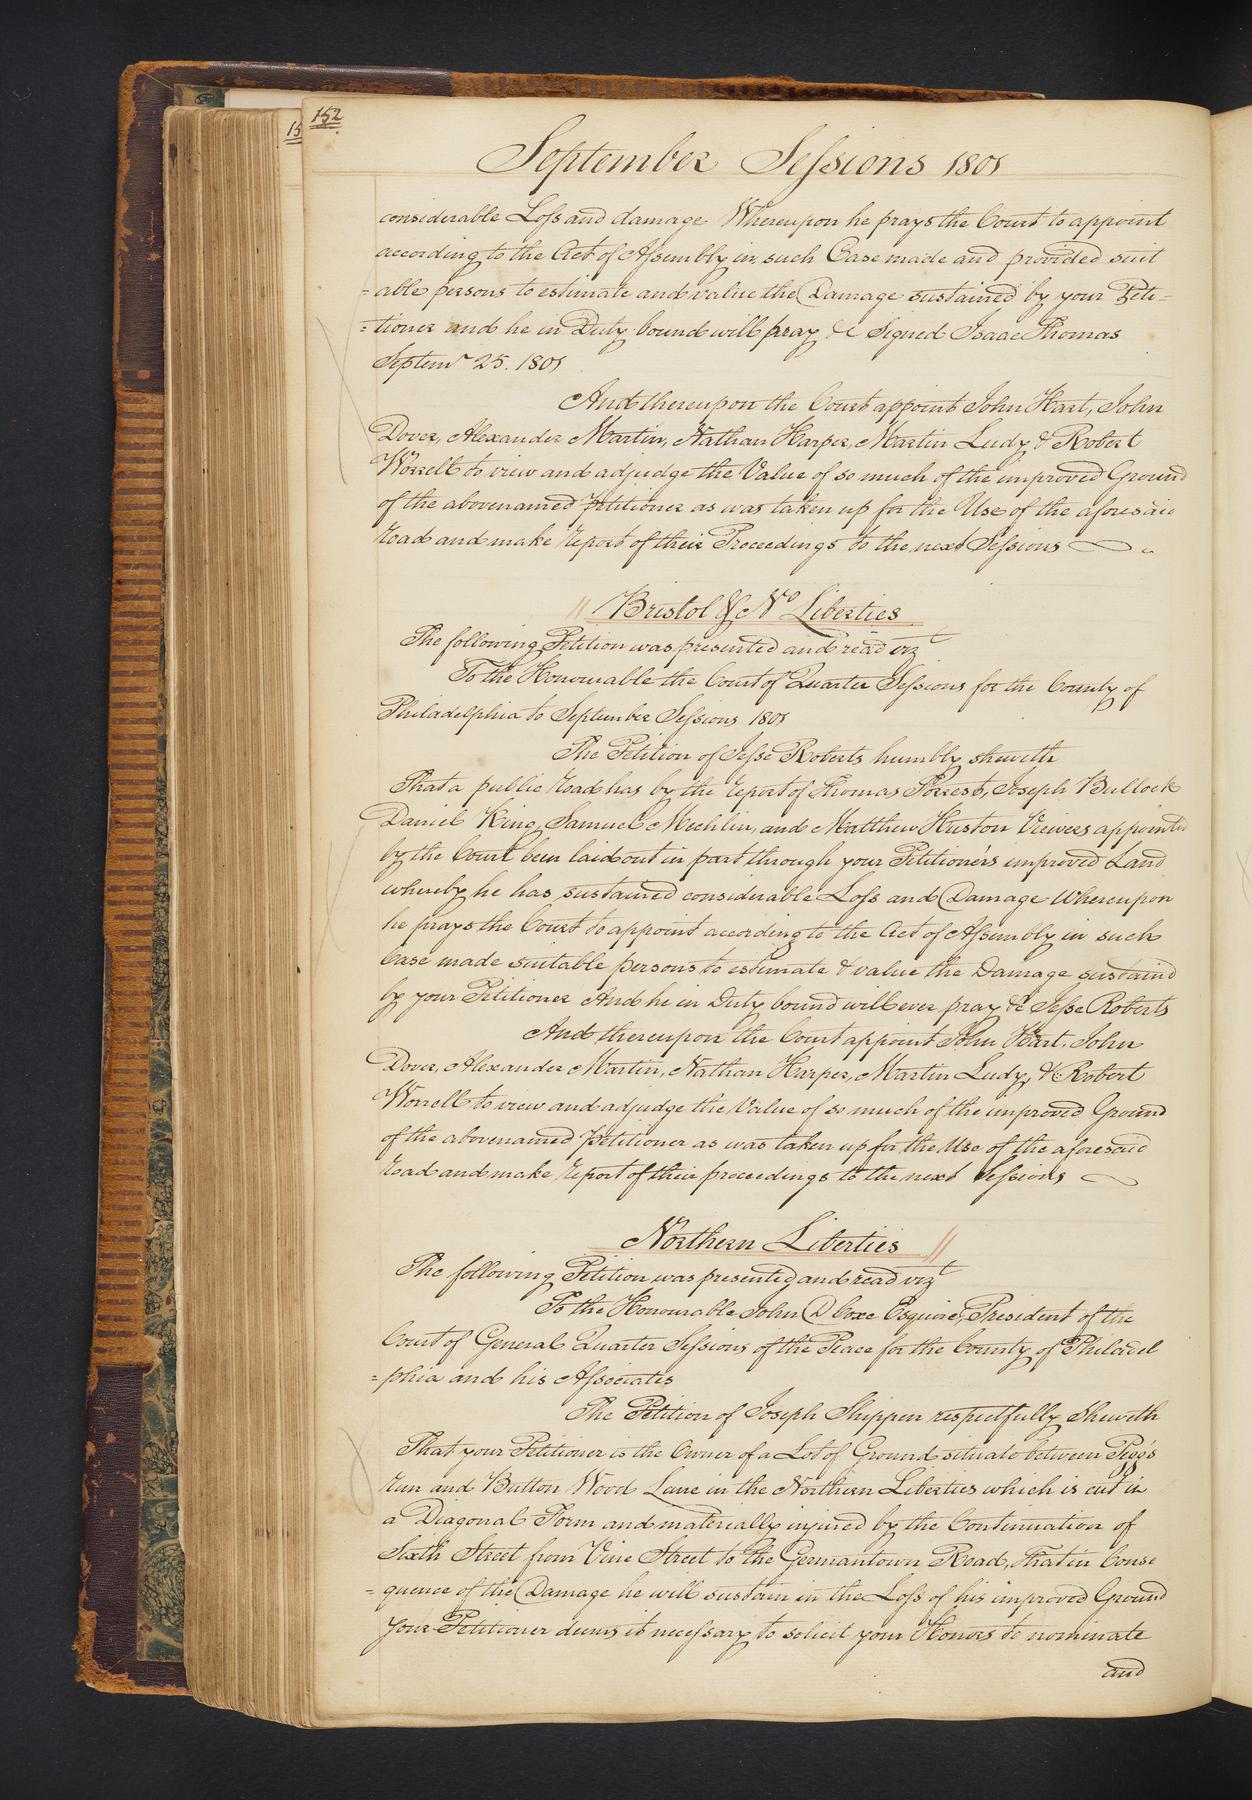 152
September Sessions 1801
considerable Loss and damage Whereupon he prays the Court to appoint
according to the Act of Assembly in such Case made and provided suit
=able persons to estimate and value the Damage sustained by your Peti=
=tioner and he in Duty bound will pray &c Signed Isaac Thomas
Septemr 25. 1801
And thereupon the Court appoint John Hart, John
Dover, Alexander Martin, Nathan Harper, Martin Ludy & Robert
Worrell to view and adjudge the Value of so much of the improved Ground
of the abovenamed Petitioner as was taken up for the Use of the aforesaid
road and make report of their Proceedings to the next Sessions
Bristol & No Liberties
The following Petition was presented and read vizt
To the Honourable the Court of Quarter Sessions for the County of
Philadelphia to September Sessions 1801
The Petition of Jesse Roberts humbly sheweth
That a public road has by the report of Thomas Forrest, Joseph Bullock
Daniel King, Samuel Mechlin, and Matthew Huston Viewers appointed
by the Court been laid out in part through your Petitioner's improved Land
whereby he has sustained considerable Loss and Damage Whereupon
he prays the Court to appoint according to the Act of Assembly in such
Case made suitable persons to estimate & value the Damage sustaind
by your Petitioner And he in Duty bound will ever pray &c Jesse Roberts
And thereupon the Court appoint John Hart, John
Dover, Alexander Martin, Nathan Harper, Martin Ludy, & Robert
Worrell to view and adjudge the Value of so much of the improved Ground
of the abovenamed Petitioner as was taken up for the Use of the aforesaid
road and make report of their proceedings to the next Sessions
Northern Liberties
The following Petition was presented and read vizt
To the Honourable John D Coxe Esquire, President of the
Court of General Quarter Sessions of the Peace for the County of Philadel
=phia and his Associates
The Petition of Joseph Shippen respectfully Sheweth
That your Petitioner is the Owner of a Lot of Ground situate between Pegg's
run and Button Wood Lane in the Northern Liberties which is cut in
a Diagonal Form and materially injured by the Continuation of
Sixth Street from Vine Street to the Germantown Road, That in Conse
=quence of the Damage he will sustain in the Loss of his improved Ground
your Petitioner deems it necessary to solicit your Honors to nominate
and